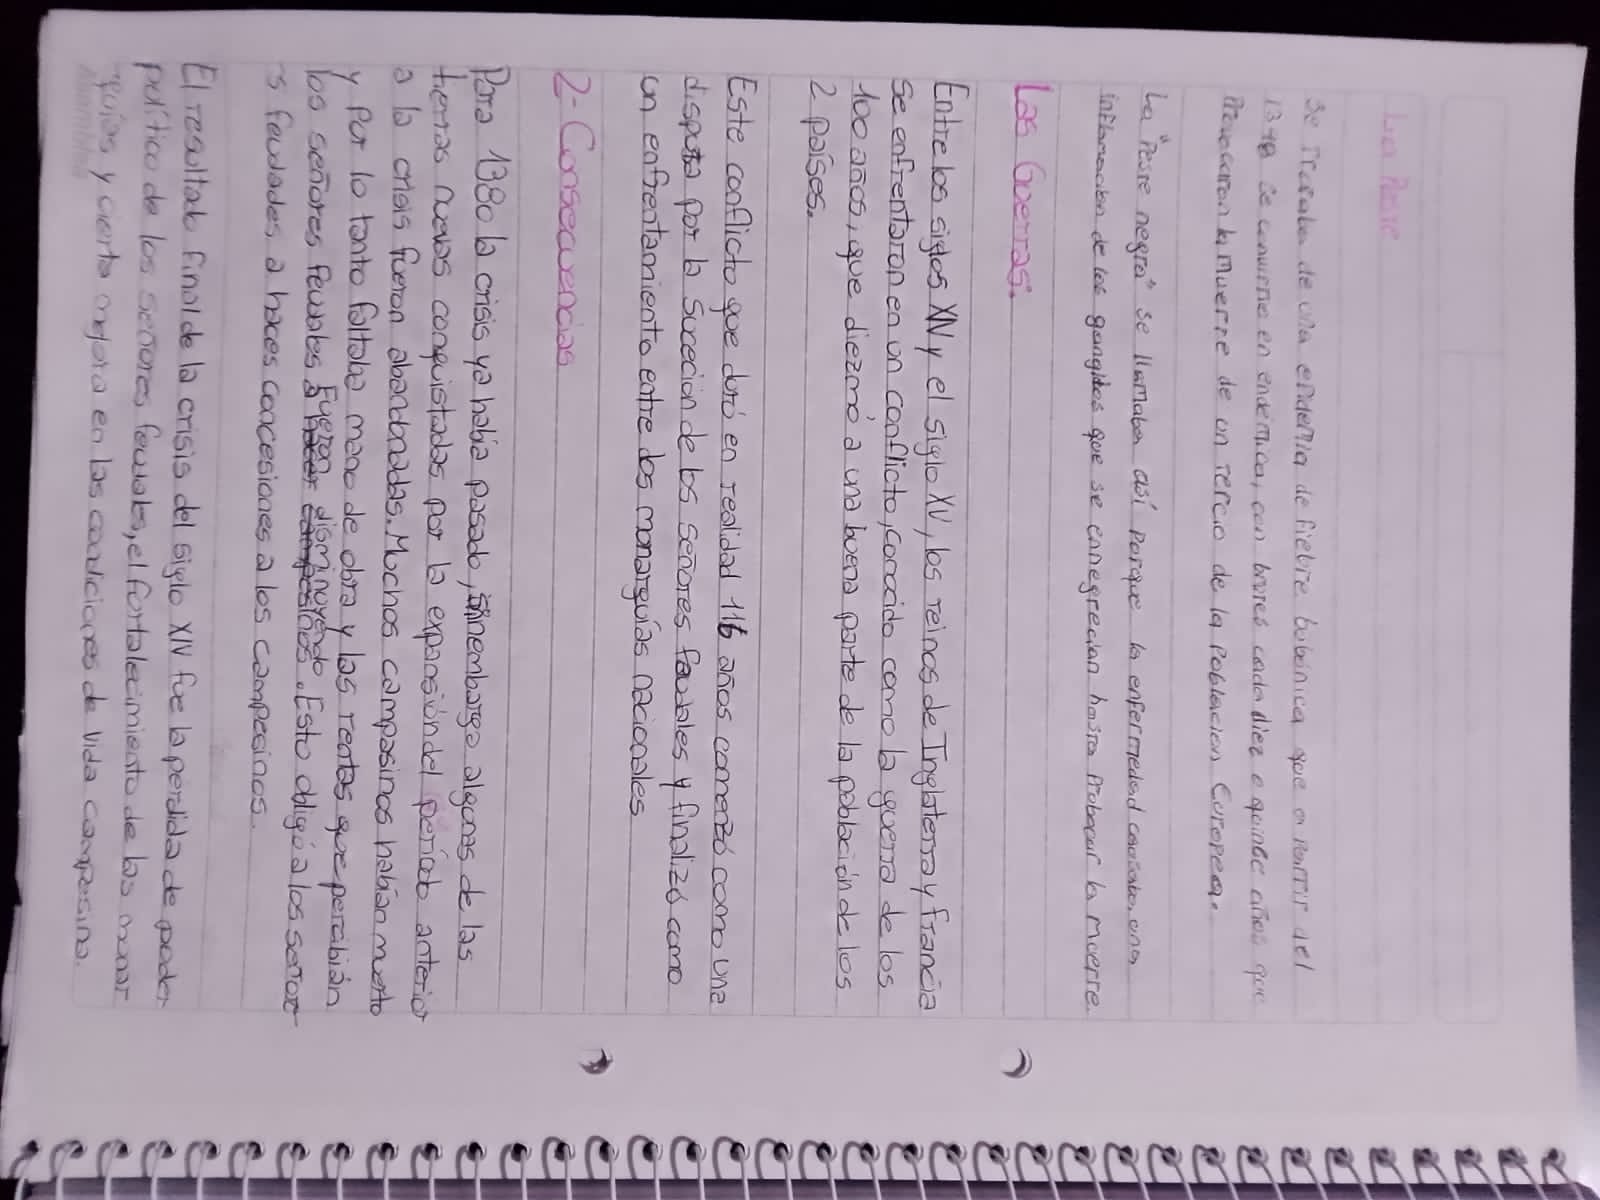 La Peste
Se trataba de una epidemia de fiebre bubónica que a partir del
1348 se convirtie en endémica, con brotes cada diez o quince años que
Provocaron la muerte de un tercio de la Poblacion Europea.
La "Peste negra" se llamaba así porque la enfermedad causaba una
inflamacion de los ganglios que se ennegrecian hasta Probocar la muerte.
Las Guerras.
Entre los siglos XIV y el siglo XV, los reinos de Inglaterra y francia
se enfrentaron en un conflicto, conocido como la guerra de los
100 años, que diezmó a una buena parte de la población de los
2 países.
Este conflicto que duró en realidad 116 años comenzó como una
disputa por la suceción de los señores feudales y finalizó como
un enfrentamiento entre dos monarquías nacionales
2- Consecuencias
Para 1380 la crisis ya había pasado, sinembargo algunas de las
tierras nuevas conquistadas por la expansión del período anterior
a la crisis fueron abandonadas. Muchos campesinos habían muerto
y por lo tanto faltaba mano de obra y las rentas que percibían
los señores feudales Fueron disminuyendo. Esto obligó a los señor
s feudales a haces concesiones a los campecinos.
El resultado final de la crisis del siglo XIV fue la pérdida de poder
político de los señores feudales, el fortalecimiento de las monar
quías y cierta mejora en las condiciones de vida campesina.